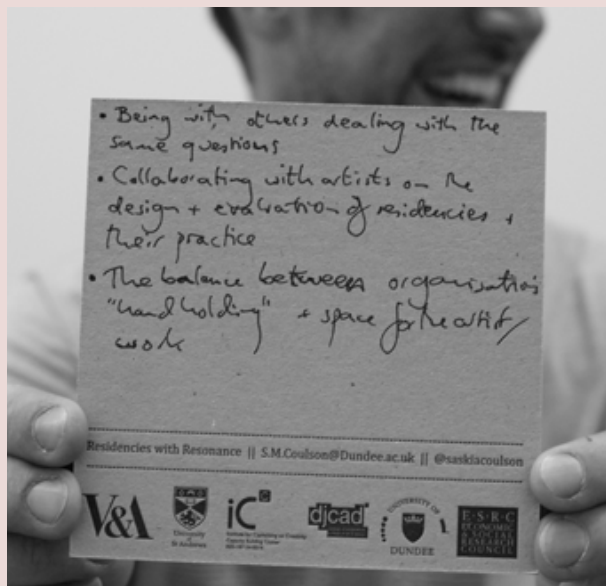 • Being with others dealing with the
same questions
• Collaborating with artists on the
design + evaluation of residencies +
their practice
• The balance between organisation's
"hand holding" + space for the artist/
work
Residencies with Resonance || S.M.Coulson@Dundee.ac.uk || @saskiacoulson
V&A
University
of
St Andrews
iC
C
djcad
UNIVERSITY OF
DUNDEE
E·S·R·C
ECONOMIC
& SOCIAL
RESEARCH
COUNCIL